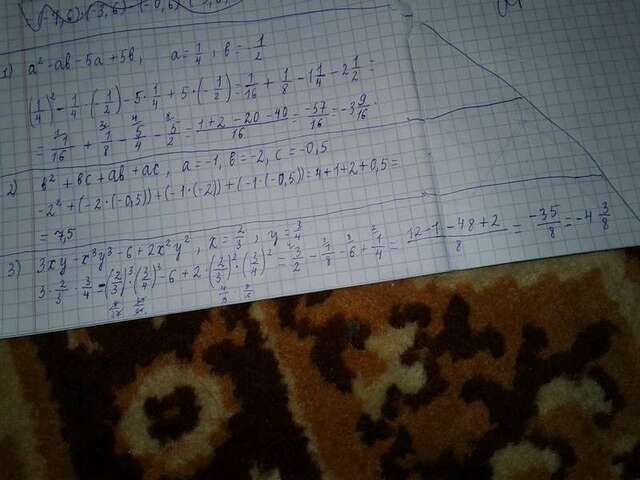 1) a² - ab - 5a + 5b, a = 1/4, b = -1/2
(1/4)² - 1/4 · (-1/2) - 5 · 1/4 + 5 · (-1/2) = 1/16 + 1/8 - 1 1/4 - 2 1/2 =
= 1/16 + 1/8 - 5/4 - 5/2 = (1+2-20-40)/16 = -57/16 = -3 9/16.
2) b² + bc + ab + ac, a = -1, b = -2, c = -0,5
-2² + (-2 · (-0,5)) + (-1 · (-2)) + (-1 · (-0,5)) = 4 + 1 + 2 + 0,5 =
= 7,5
3) 3xy - x³y³ - 6 + 2x²y², x = 2/3, y = 3/4
3 · 2/3 · 3/4 - (2/3)³ · (3/4)³ - 6 + 2 · (2/3)² · (3/4)² = 3/2 - 1/8 - 6 + 1/4 = (12-1-48+2)/8 = -35/8 = -4 3/8